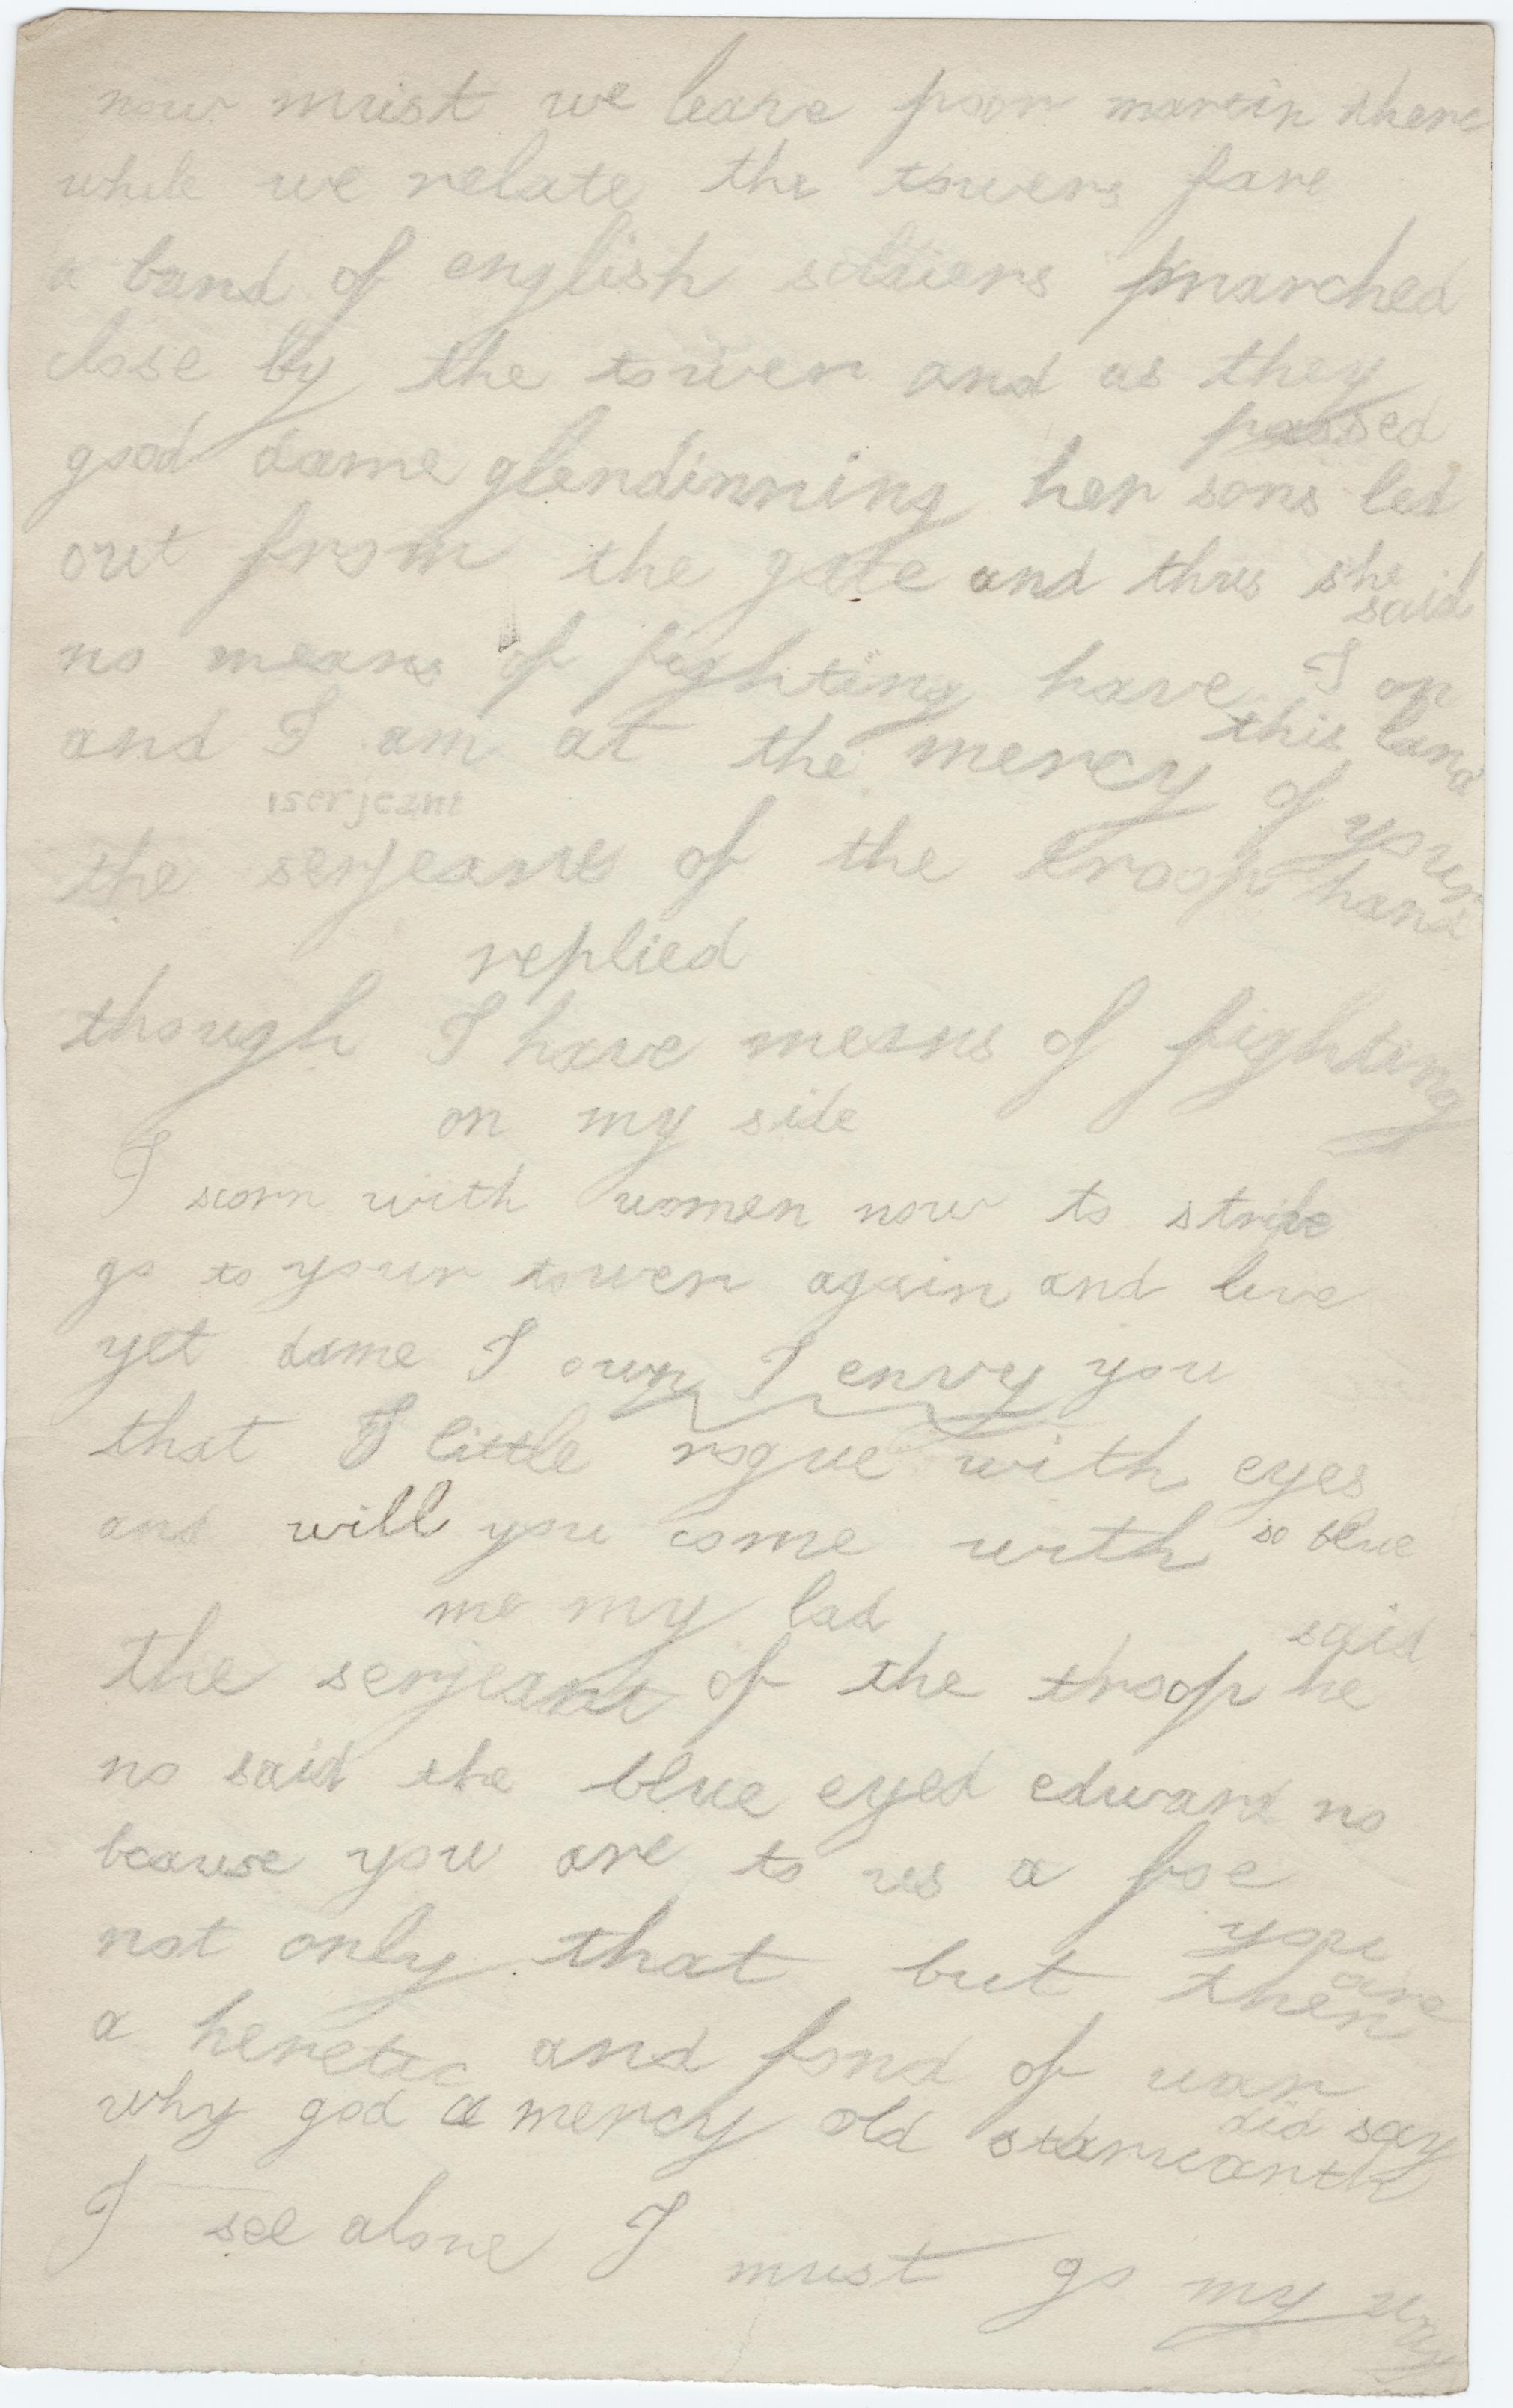 now must we leave poor martin there
while we relate the towers fare
a band of english soldiers marched
close by the tower and as they
passed
good dame glendinning her sons led
out from the gate and thus she
said
no means of fighting have I on
this land
and I am at the mercy of your
hand
serjeant
the serjeant of the troop
replied
though I have means of fighting
on my side
I scorn with women now to strive
go to your tower again and live
yet dame I own I envy you
that little rogue with eyes
so blue
and will you come with
me my lad
said
the serjeant of the troop he
no said the blue eyed edward no
because you are to us a foe
not only that but then
you are
a heretic and fond of war
why god a mercy old stawarth
did say
I see alone I must go my way